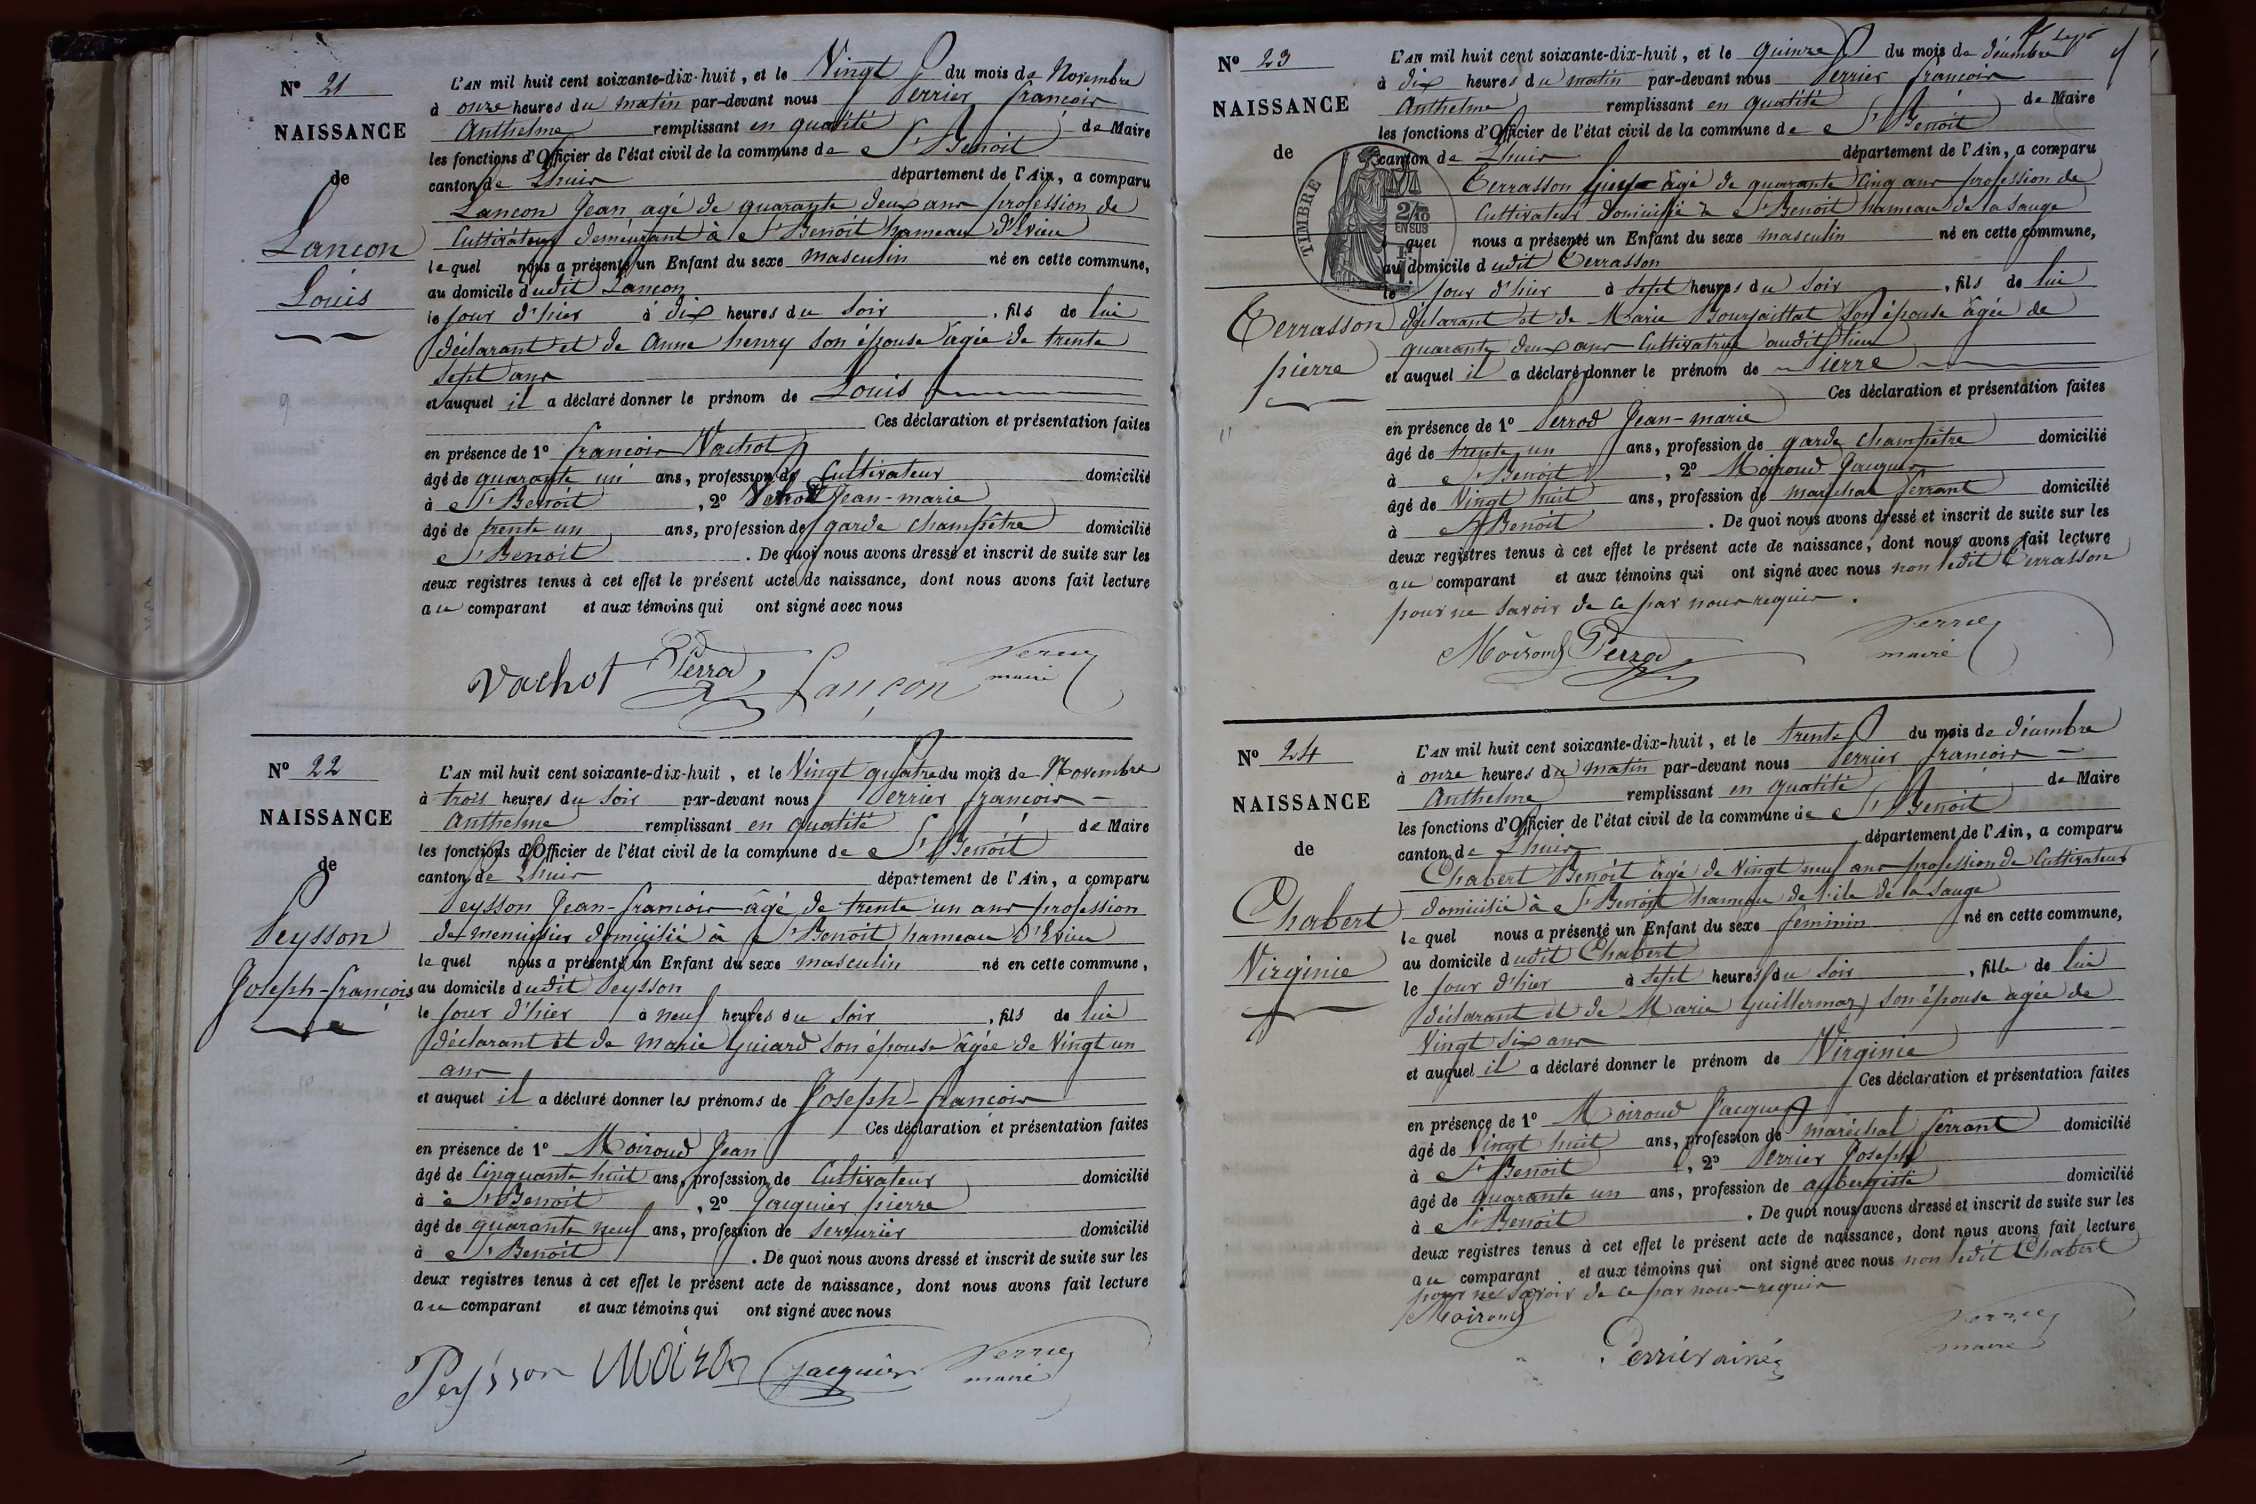 N° 21
NAISSANCE
de
Lançon
Louis
L'AN mil huit cent soixante-dix-huit, et le Vingt du mois de Novembre
à onze heures du matin par-devant nous Perrier françois
Anthelme remplissant en qualité de Maire
les fonctions d'Officier de l'état civil de la commune de St Benoit
canton de Lhuis département de l'Ain, a comparu
Lancon Jean agé de quarante deux ans profession de
Cultivateur demeurant à St Benoit hameau d'Evieu
lequel nous a présenté un Enfant du sexe masculin né en cette commune,
au domicile dudit Lancon
le jour d'hier à dix heures du soir, fils de lui
déclarant et de Anne henry son épouse âgée de trente
sept ans
et auquel il a déclaré donner le prénom de Louis
Ces déclaration et présentation faites
en présence de 1° françois Vachot
âgé de quarante un ans, profession de Cultivateur domicilié
à St Benoit, 2° Jean-marie
âgé de trente un ans, profession de garde champêtre domicilié
St Benoit. De quoi nous avons dressé et inscrit de suite sur les
deux registres tenus à cet effet le présent acte de naissance, dont nous avons fait lecture
au comparant et aux témoins qui ont signé avec nous
Vachot Perrod Lançon Perrier
maire
N° 22
NAISSANCE
de
Peysson
Joseph-françois
L'AN mil huit cent soixante-dix-huit, et le Vingt quatre du mois de Novembre
à trois heures du soir par-devant nous Perrier françois
Anthelme remplissant en qualité de Maire
les fonctions d'Officier de l'état civil de la commune de St Benoit
canton de Lhuis département de l'Ain, a comparu
Peysson Jean-françois âgé de trente un ans profession
de menuisier domicilié à St Benoit hameau d'Evieu
lequel nous a présenté un Enfant du sexe masculin né en cette commune,
au domicile dudit Peysson
le jour d'hier à neuf heures du soir, fils de lui
déclarant et de Marie Guiard son épouse âgée de Vingt un
ans
et auquel il a déclaré donner les prénoms de Joseph-françois
Ces déclaration et présentation faites
en présence de 1° Moiroud Jean
âgé de Cinquante huit ans, profession de Cultivateur domicilié
à St Benoit, 2° Jacquier pierre
âgé de quarante neuf ans, profession de serrurier domicilié
à St Benoit. De quoi nous avons dressé et inscrit de suite sur les
deux registres tenus à cet effet le présent acte de naissance, dont nous avons fait lecture
au comparant et aux témoins qui ont signé avec nous
Peysson Moiron Jacquier Perrier
maire
N° 23
NAISSANCE
de
Terrasson
pierre
TIMBRE
2/10
EN SUS
L'AN mil huit cent soixante-dix-huit, et le quinze du mois de décembre
à dix heures du matin par-devant nous Perrier françois
Anthelme remplissant en qualité de Maire
les fonctions d'Officier de l'état civil de la commune de St Benoit
canton de Lhuis département de l'Ain, a comparu
Terrasson âgé de quarante Cinq ans profession de
Cultivateur domicilié à St Benoit hameau de la Sauge
quel nous a présenté un Enfant du sexe masculin né en cette commune,
au domicile dudit Terrasson
le jour d'hier à sept heures du soir, fils de lui
déclarant et de Marie Bourjaillat son épouse âgée de
quarante deux ans Cultivatrice audit lieu
et auquel il a déclaré donner le prénom de Pierre
Ces déclaration et présentation faites
en présence de 1° Perrod Jean-marie
âgé de trente un ans, profession de garde champêtre domicilié
à St Benoit, 2° Moiroud Jacques
âgé de Vingt huit ans, profession de maréchal ferrant domicilié
à St Benoit. De quoi nous avons dressé et inscrit de suite sur les
deux registres tenus à cet effet le présent acte de naissance, dont nous avons fait lecture
au comparant et aux témoins qui ont signé avec nous non ledit Terrasson
pour ne savoir de ce par nous requis.
Moiroud Perrod Perrier
maire
N° 24
NAISSANCE
de
Chabert
Virginie
L'AN mil huit cent soixante-dix-huit, et le trente du mois de décembre
à onze heures du matin par-devant nous Perrier françois
Anthelme remplissant en qualité de Maire
les fonctions d'Officier de l'état civil de la commune de St Benoit
canton de Lhuis département de l'Ain, a comparu
Chabert Benoit âgé de Vingt neuf ans profession de Cultivateur
domicilié à St Benoit hameau de l'ile de la Sauge
lequel nous a présenté un Enfant du sexe feminin né en cette commune,
au domicile dudit Chabert
le jour d'hier à sept heures du soir, fille de lui
déclarant et de Marie Guillermaz son épouse âgée de
Vingt six ans
et auquel il a déclaré donner le prénom de Virginie
Ces déclaration et présentation faites
en présence de 1° Moiroud Jacques
âgé de Vingt huit ans, profession de maréchal ferrant domicilié
à St Benoit, 2° Perrier Joseph
âgé de quarante un ans, profession de aubergiste domicilié
à St Benoit. De quoi nous avons dressé et inscrit de suite sur les
deux registres tenus à cet effet le présent acte de naissance, dont nous avons fait lecture
au comparant et aux témoins qui ont signé avec nous non ledit Chabert
pour ne savoir de ce par nous requis
Moiroud Perrier
Perrier ainé maire